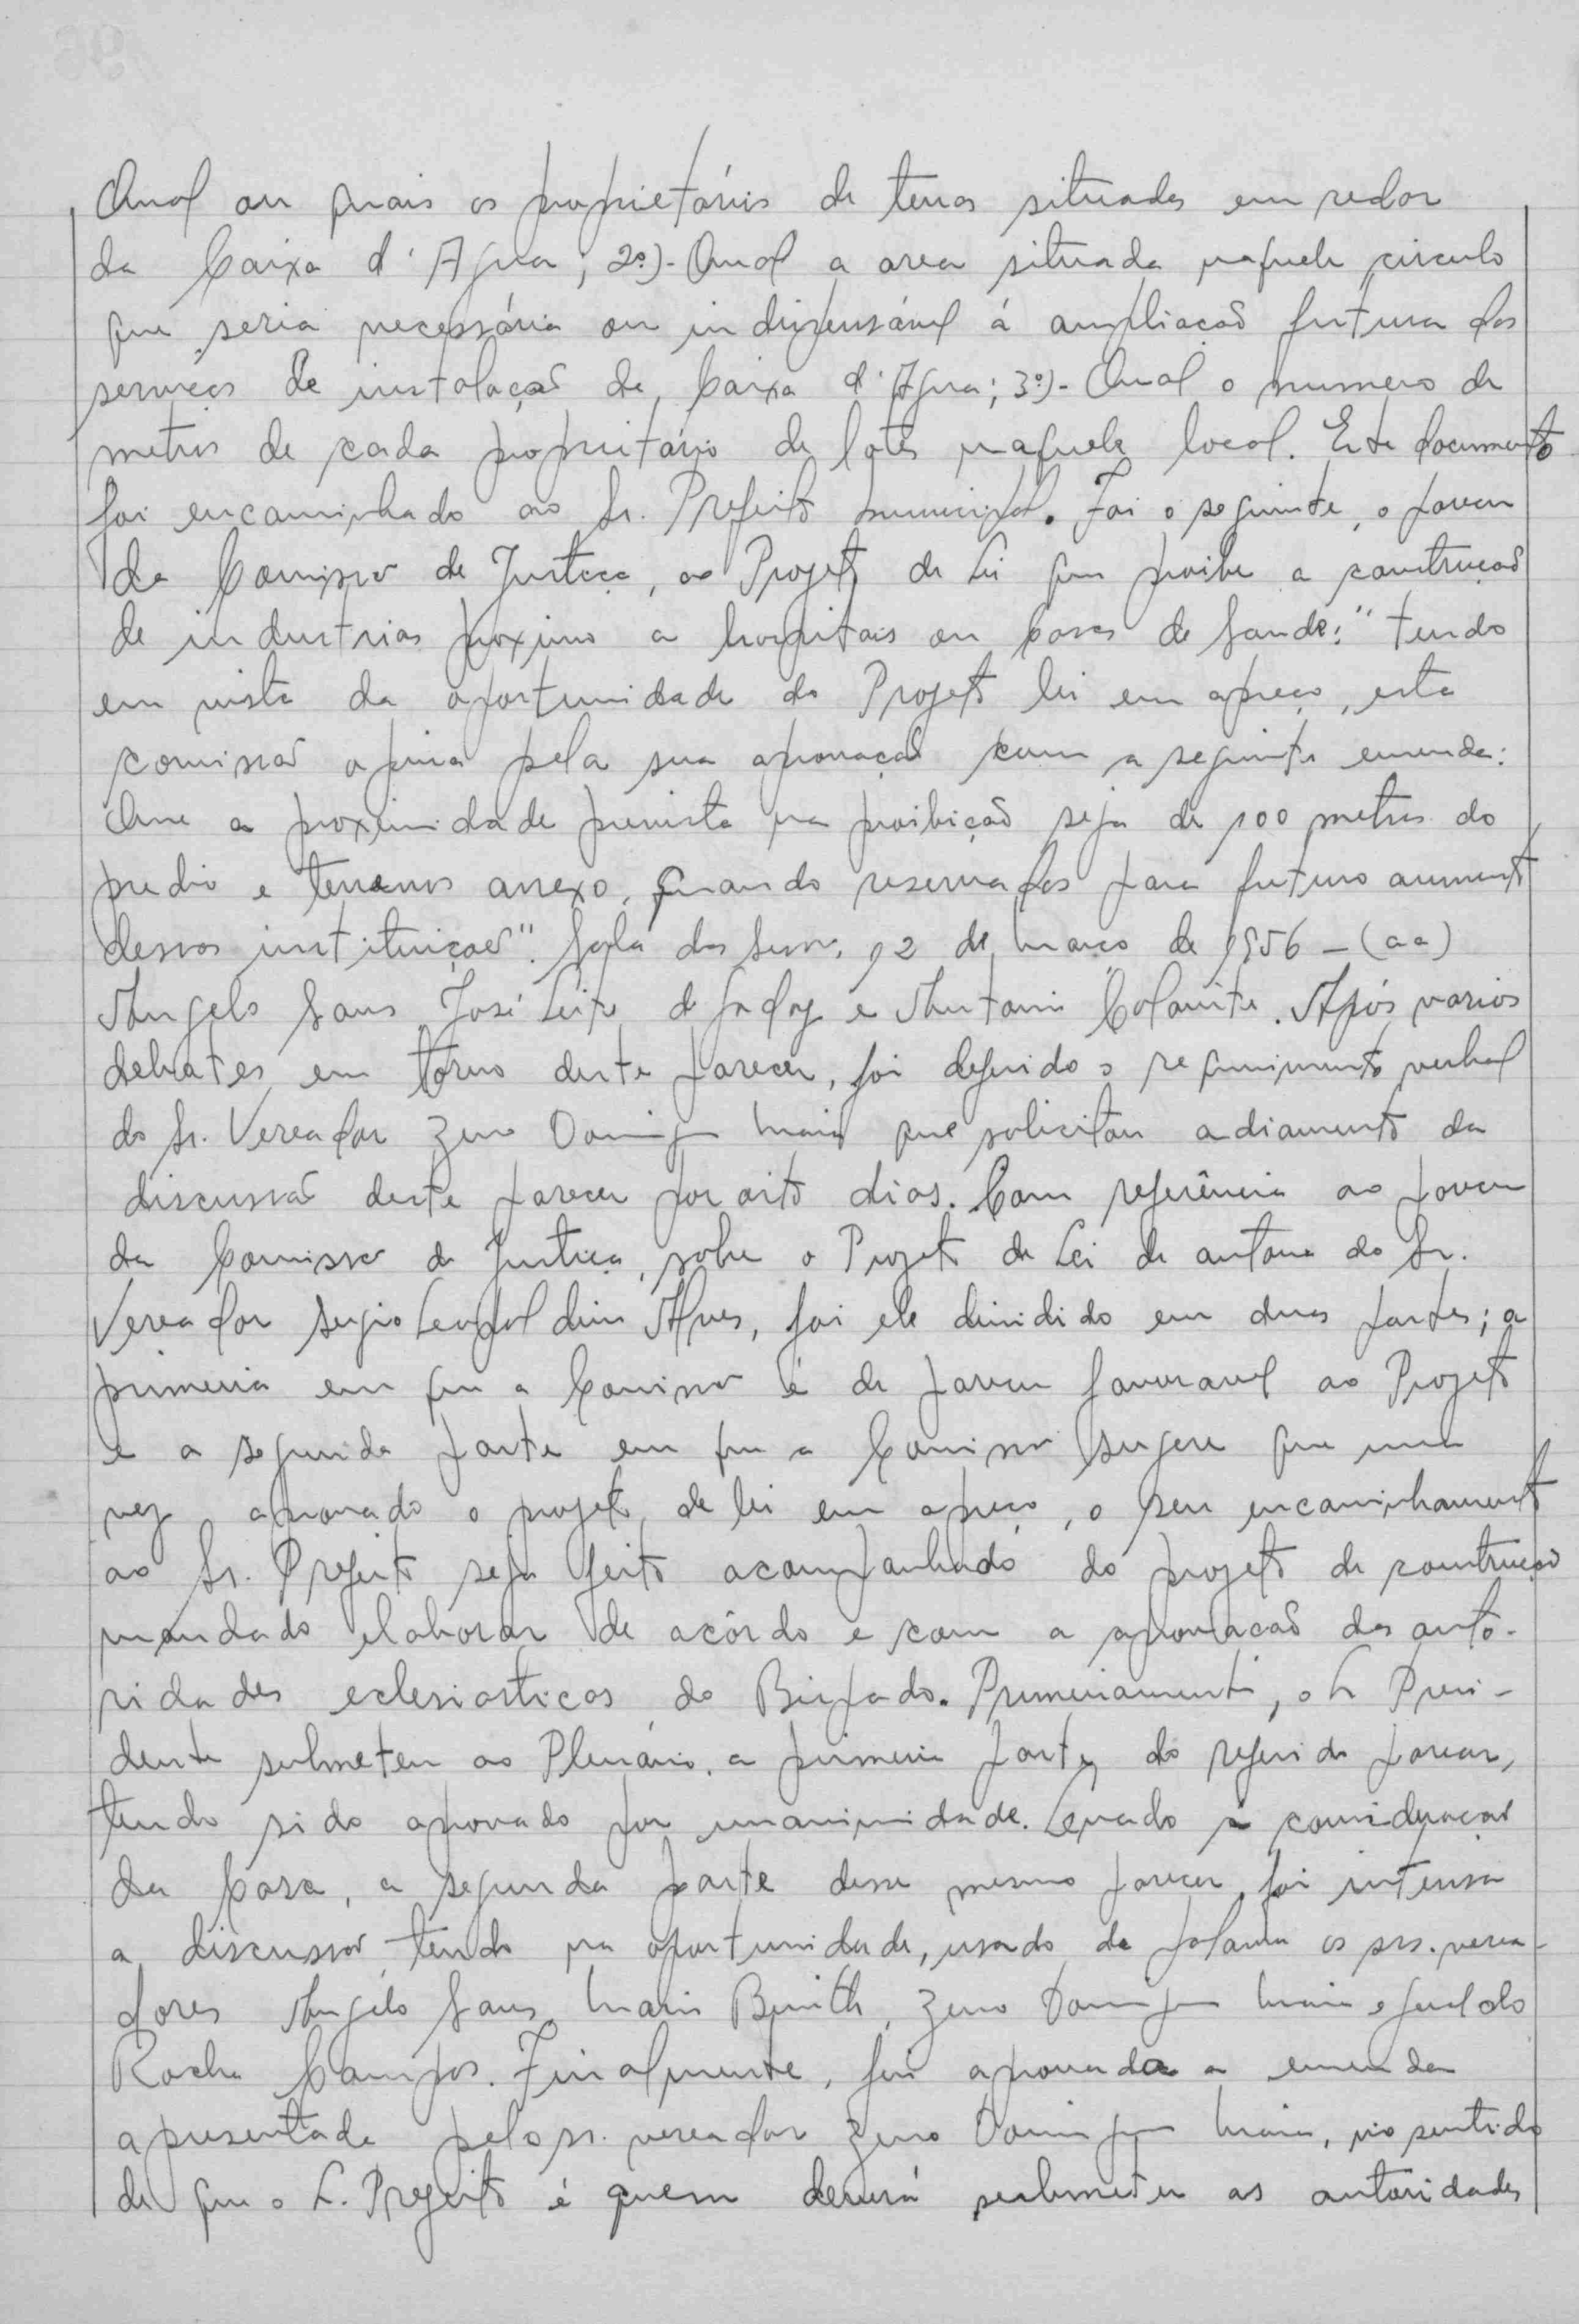 Qual ou quais os proprietários de terras situadas em redor
da Caixa d'Agua; 2º)- Qual a area situada naquele circulo
que seria necessária ou indispensável á ampliação futura dos
serviços de instalação da Caixa d'Agua; 3º)- Qual o numero de
metros de cada proprietário de lotes naquele local. Este documento
foi encaminhado ao Sr. Prefeito municipal. Foi o seguinte, o parecer
da Comissão de Justiça, ao Projeto de Lei que proibe a construção
de industrias proximo a hospitais ou Casas de Saude: "tendo
em vista da oportunidade do Projeto lei em apreço, esta
comissão opina pela sua aprovação com a seguinte emenda:
Que a proximidade prevista na proibição seja de 100 metros do
predio e terrenos anexo, quando reservados para futuro aumento
dessas instituiçoes". Sala das Sess. 12 de março de 1956 - (aa)
Angelo Sans, José Leite de Godoy e Antonio Colavite. Após varios
debates em tôrno deste parecer, foi deferido o requerimento verbal
do Sr. Vereador Zeno Domingues Maia que solicitou adiamento da
discussão deste parecer por oito dias. Com referência ao parecer
da Comissão de Justiça, sobre o Projeto de Lei de autoria do Sr.
Vereador Sergio Leopoldino Alves, foi ele dividido em duas partes; a
primeira em que a Comissão é de parecer favoravel ao Projeto
e a segunda parte em que a Comissão sugere que uma
vez aprovado o projeto de lei em apreço, o seu encaminhamento
ao Sr. Prefeito seja feito acompanhado do projeto de construção
mandado elaborar de acôrdo e com a aprovação das auto-
ridades eclesiasticas do Bispado. Primeiramente, o Sr Presi-
dente submeteu ao Plenário, a primeira parte do referido parecer,
tendo sido aprovado por unanimidade. Levado à consideração
da Casa, a segunda parte desse mesmo parecer, foi intensa
a discussão, tendo na oportunidade, usado da palavra os srs. verea-
dores Angelo Sans, Mario Zeno Domingues Maia e Geraldo
Rocha Campos. Finalmente, foi aprovada a emenda
apresentada pelo sr. vereador Zeno Domingues Maia, no sentido
de que o Sr. Prefeito é quem deverá submeter as autoridades